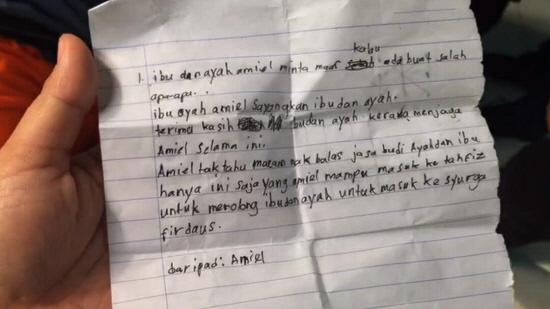 kalau
1. ibu dan ayah amiel minta maaf ada buat salah
apa-apa.
ibu ayah amiel sayangkan ibu dan ayah.
terima kasih budan ayah kerana menjaga
Amiel selama ini.
Amiel tak tahu macam nak balas jasa budi Ayah dan ibu
hanya ini saja yang amiel mampu masuk ke tahfiz
untuk menolong ibu dan ayah untuk masuk ke syurga
firdaus.
daripad: Amiel